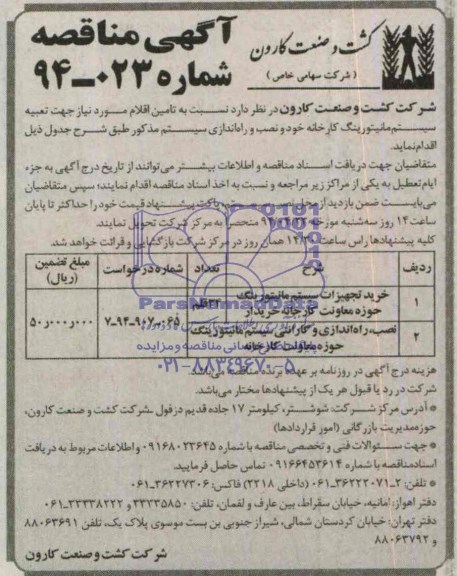 کشت و صنعت کارون
(شرکت سهامی خاص)
آگهی مناقصه
شماره ۰۲۳-۹۴
شرکت کشت و صنعت کارون در نظر دارد نسبت به تامین اقلام مورد نیاز جهت تعبیه
سیستم مانیتورینگ کارخانه خود و نصب و راه‌اندازی سیستم مذکور طبق شرح جدول ذیل
اقدام نماید.
متقاضیان جهت دریافت اسناد مناقصه و اطلاعات بیشتر می‌توانند از تاریخ درج آگهی به جزء
ایام تعطیل به یکی از مراکز زیر مراجعه و نسبت به اخذ اسناد مناقصه اقدام نمایند؛ سپس متقاضیان
می‌بایست ضمن بازدید از محل پیشنهاد قیمت خود را حداکثر تا پایان
ساعت ۱۴ روز سه‌شنبه مورخه منحصراً به مرکز شرکت تحویل نمایند.
کلیه پیشنهادها راس ساعت ۱۴/۳۰ همان روز در مرکز شرکت بازگشایی و قرائت خواهد شد.
ردیف شرح تعداد شماره درخواست مبلغ تضمین (ریال)
۱ خرید تجهیزات سیستم مانیتورینگ حوزه معاونت کارخانه خریدار قلم
۲ نصب، راه‌اندازی و گارانتی سیستم مانیتورینگ حوزه معاونت کارخانه
۵۰,۰۰۰,۰۰۰
ParsNamadData
پایگاه اطلاع رسانی مناقصه و مزایده
۰۲۱-۸۸۳۴۹۶۷۰-۵
هزینه درج آگهی در روزنامه بر عهده برنده مناقصه می‌باشد.
شرکت در رد یا قبول هر یک از پیشنهادها مختار می‌باشد.
* آدرس مرکز شرکت: شوشتر، کیلومتر ۱۷ جاده قدیم دزفول ـ شرکت کشت و صنعت کارون،
حوزه مدیریت بازرگانی (امور قراردادها)
* جهت سئوالات فنی و تخصصی مناقصه با شماره ۰۹۱۶۸۰۲۳۶۴۵ و اطلاعات مربوط به دریافت
اسناد مناقصه با شماره ۰۹۱۶۶۴۵۳۶۱۴ تماس حاصل فرمایید.
* تلفن: ۲-۳۶۲۲۲۰۷۱-۰۶۱ (داخلی ۲۲۱۸) فاکس: ۳۶۲۲۷۳۰۶-۰۶۱
دفتر اهواز: امانیه، خیابان سقراط، بین عارف و لقمان، تلفن: ۳۳۳۳۵۸۵۰ و ۳۳۳۳۸۲۲۲-۰۶۱
دفتر تهران: خیابان کردستان شمالی، شیراز جنوبی بن بست موسوی پلاک یک، تلفن ۸۸۰۶۳۶۹۱
و ۸۸۰۶۳۷۹۲
شرکت کشت و صنعت کارون